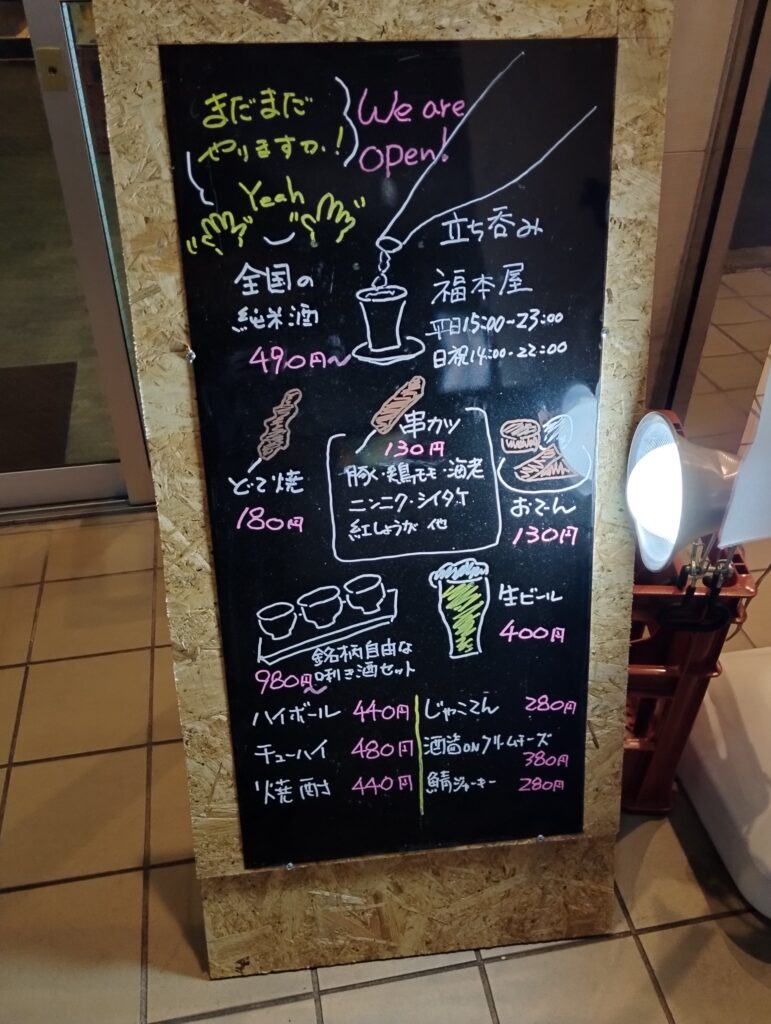 まだまだ
やりますわ!
We are
open!
Yeah
立ち呑み
福本屋
平日15:00-23:00
日祝14:00-22:00
全国の
純米酒
490円〜
どて焼
180円
串カツ
130円
豚・鶏モモ・海老
ニンニク・シイタケ
紅しょうが 他
おでん
130円
銘柄自由な
唎き酒セット
980円〜
生ビール
400円
ハイボール 440円
チューハイ 480円
焼酎 440円
じゃこてん 280円
酒盗onクリームチーズ
380円
鯖ジャーキー 280円